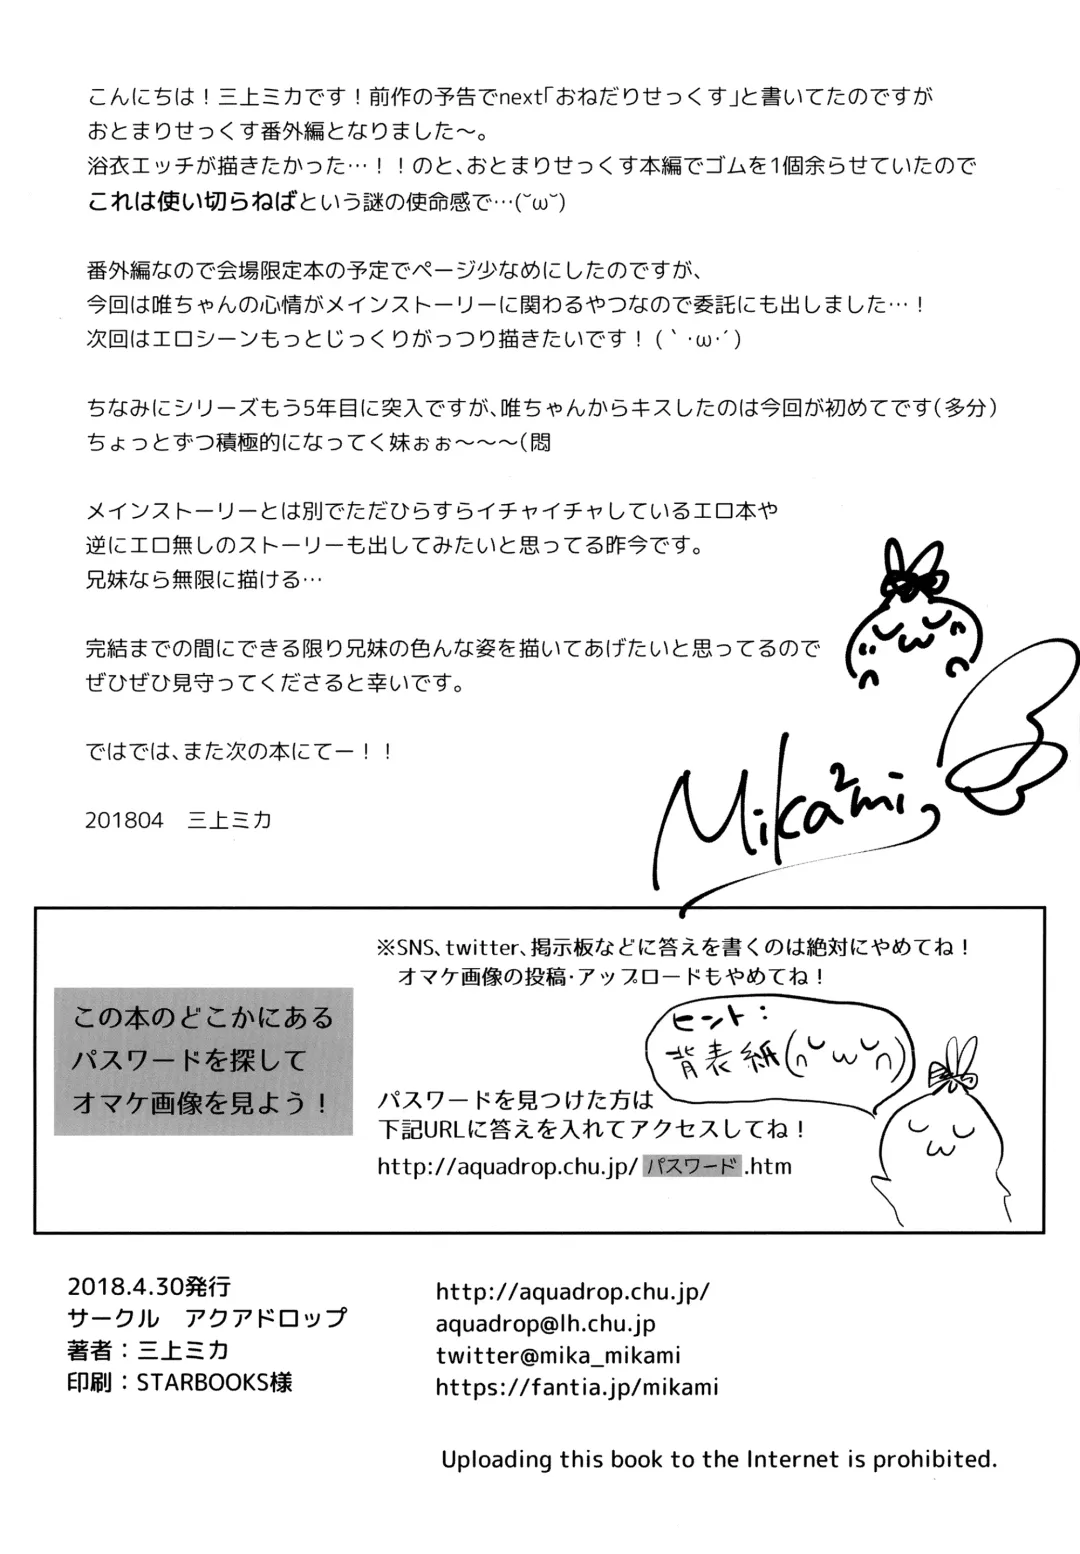 こんにちは！三上ミカです！前作の予告でnext「おねだりせっくす」と書いてたのですが
おとまりせっくす番外編となりました～。
浴衣エッチが描きたかった…！！のと、おとまりせっくす本編でゴムを1個余らせていたので
これは使い切らねばという謎の使命感で…(˘ω˘)
番外編なので会場限定本の予定でページ少なめにしたのですが、
今回は唯ちゃんの心情がメインストーリーに関わるやつなので委託にも出しました…！
次回はエロシーンもっとじっくりがっつり描きたいです！(｀･ω･´)
ちなみにシリーズもう5年目に突入ですが、唯ちゃんからキスしたのは今回が初めてです(多分)
ちょっとずつ積極的になってく妹ぉぉ～～～(悶
メインストーリーとは別でただひたすらイチャイチャしているエロ本や
逆にエロ無しのストーリーも出してみたいと思ってる昨今です。
兄妹なら無限に描ける…
完結までの間にできる限り兄妹の色んな姿を描いてあげたいと思ってるので
ぜひぜひ見守ってくださると幸いです。
ではでは、また次の本にてー！！
201804　三上ミカ
Mika²mi
※SNS、twitter、掲示板などに答えを書くのは絶対にやめてね！
オマケ画像の投稿･アップロードもやめてね！
この本のどこかにある
パスワードを探して
オマケ画像を見よう！
ヒント：
背表紙
パスワードを見つけた方は
下記URLに答えを入れてアクセスしてね！
http://aquadrop.chu.jp/パスワード.htm
2018.4.30発行
サークル　アクアドロップ
著者：三上ミカ
印刷：STARBOOKS様
http://aquadrop.chu.jp/
aquadrop@lh.chu.jp
twitter@mika_mikami
https://fantia.jp/mikami
Uploading this book to the Internet is prohibited.